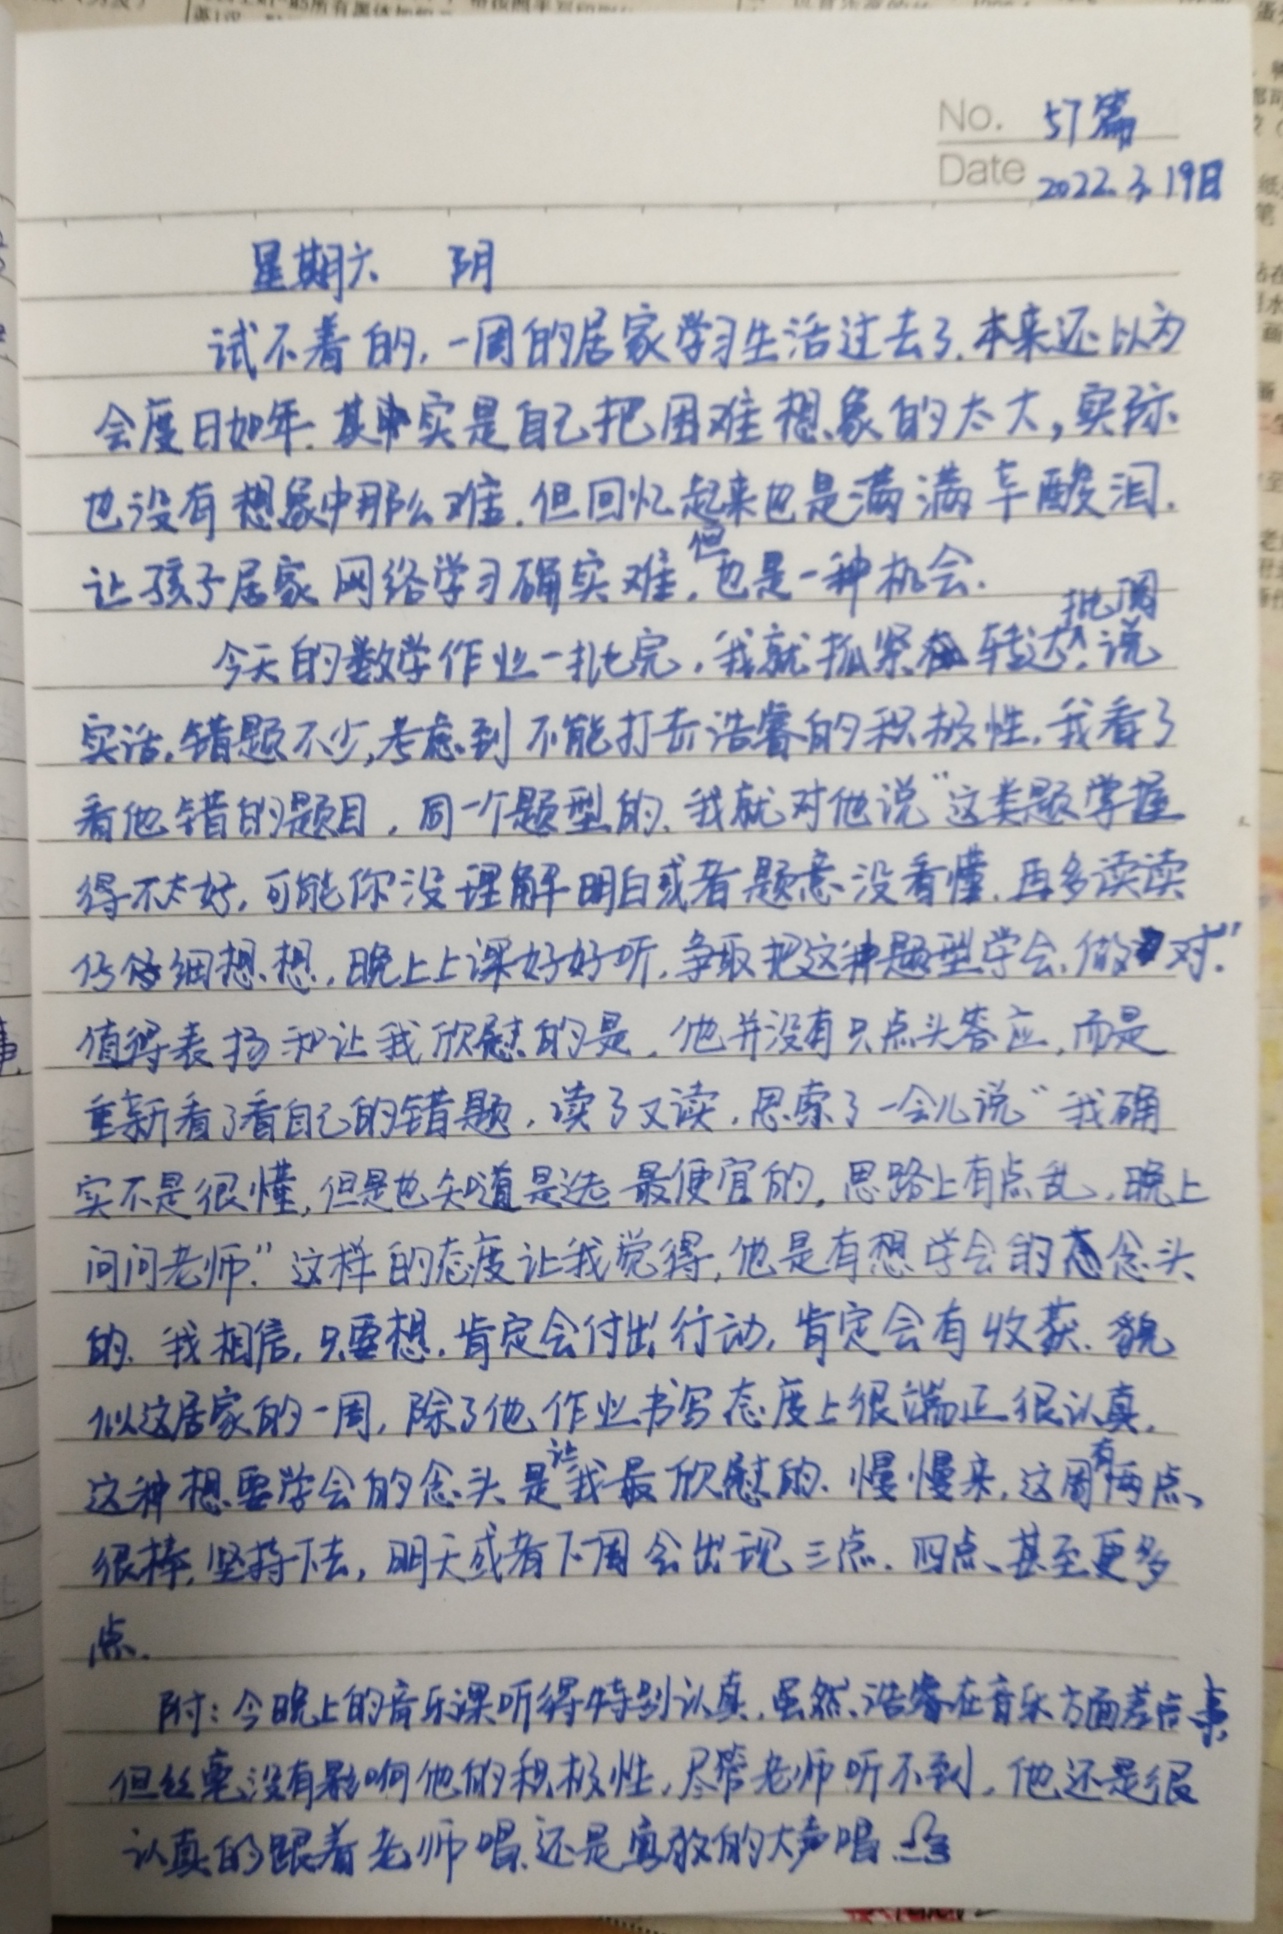 No. 57篇
Date 2022.3.19日
星期六 阴
试不着的，一周的居家学习生活过去了.本来还以为
会度日如年.其实是自己把困难想象的太大,实际
也没有想象中那么难.但回忆起来也是满满辛酸泪.
让孩子居家网络学习确实难,但也是一种机会.
今天的数学作业一批完,我就抓紧转达批阅.说
实话,错题不少,考虑到不能打击浩睿的积极性,我看了
看他错的题目,同一个题型的、我就对他说“这类题掌握
得不太好,可能你没理解明白或者题意没看懂.再多读读
仔仔细想想,晚上上课好好听,争取把这种题型学会.做对.”
值得表扬和让我欣慰的是,他并没有只点头答应,而是
重新看了看自己的错题,读了又读,思索了一会儿说“我确
实不是很懂,但是也知道是选最便宜的,思路上有点乱,晚上
问问老师.”这样的态度让我觉得,他是有想学会的念头
的.我相信,只要想,肯定会付出行动,肯定会有收获.貌
似这居家的一周,除了他作业书写态度上很端正很认真.
这种想要学会的念头是让我最欣慰的.慢慢来,这周有两点
很棒,坚持下去,明天或者下周会出现三点.四点、甚至更多
点.
附:今晚上的音乐课听得特别认真.虽然、浩睿在音乐方面差点事
但丝毫没有影响他的积极性,尽管老师听不到,他还是很
认真的跟着老师唱.还是豪放的大声唱.